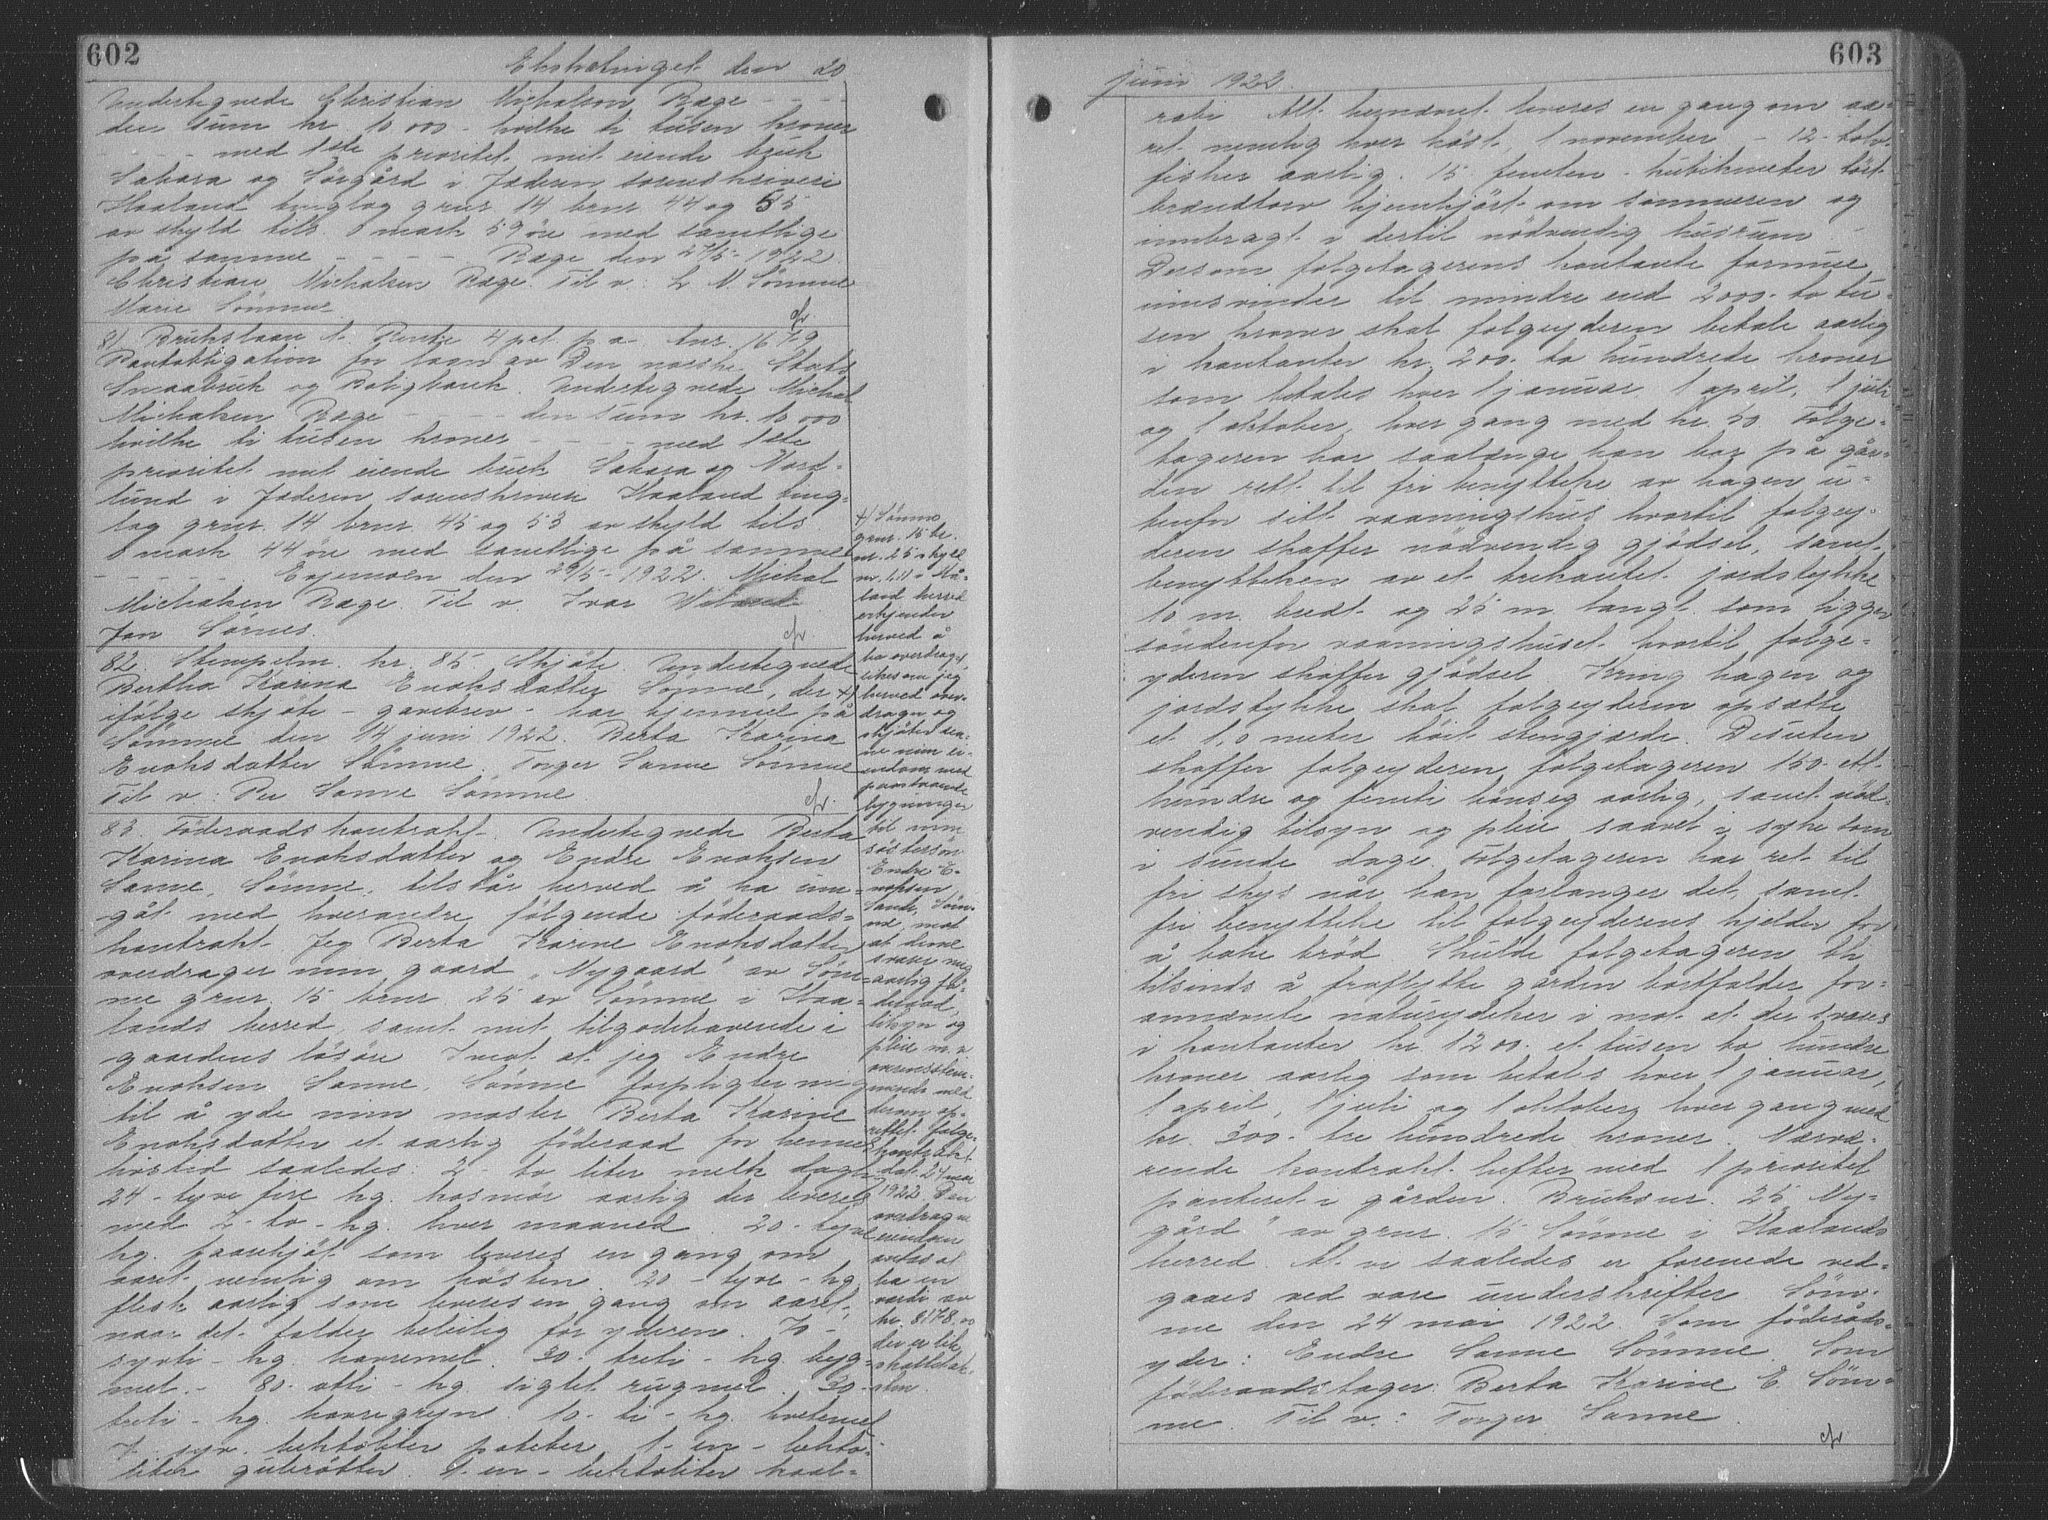 602
Ekstratinget den 20
Undertegnede Christian Michalsen Rage - - - -
den sum kr. 10 000 - hvilke ti tusen kroner
- - - - med 1ste prioritet mit eiende bruk
Sahara og Sørgård i Jæderen sorenskriveri
Haaland tinglag grnr 14 brnr 44 og 55
av skyld tils. 8 mark 59 øre med samtlige
på samme - - - - - Rage den 27/5 - 1922
Christian Michalsen Rage. Til v: L M. Sømme
Marie Sømme.
81 Brukslaan 1. Rente 4 pct. p a. Lnr. 16
Pantobligation for laan av Den norske Stats
Smaabruk og Boligbank. Undertegnede Michal
Michalsen Rage - - - - - den sum kr. 10 000
hvilke ti tusen kroner - - - - med 1ste
prioritet mit eiende bruk Sahara og Nord-
lund i Jæderen sorenskriveri Haaland ting-
lag grnr. 14 brnr 45 og 53 av skyld tils
8 mark 44 øre med samtlige på samme
- - - - - Evjemoen den 29/5 - 1922. Michal
Michalsen Rage. Til v. Ivar
Jon Sørnes.
82. Stempelm. kr. 85 Skjøte. Undertegnede
Bertha Karina Enoksdatter Sømme, der x)
ifølge skjøte - gavebrev - har hjemmel på
Sømme den 14 juni 1922. Berta Karina
Enoksdatter Sømme. Torger Sanne Sømme
Til v: Per Sanne Sømme.
83. Føderaadskontrakt. Undertegnede Berta
Karina Enoksdatter og Endre Enoksen
Sanne, Sømme, tilstår herved å ha inn-
gåt med hverandre følgende føderaads-
kontrakt. Jeg Berta Karine Enoksdatter
overdrager min gaard „Nygaard" av Søm-
me grnr. 15 brnr 25 av Sømme i Haa-
lands herred, samt mit tilgodehavende i
gaardens løsøre. Imot at jeg Endre
Enoksen Sanne, Sømme forpligter mig
til å yde min moster Berta Karine
Enoksdatter et aarlig føderaad for hennes
livstid saaledes: 2 - to liter melk daglig
24 - tyve fire kg. kosmør aarlig der leveres
med 2 - to - kg. hver maaned. 20 - tyve
kg. faarekjøt som leveres en gang om
aaret nemlig om høsten. 20 - tyve - kg
flesk aarlig som leveres en gang om aaret
naar det falder beleilig for yderen. 70 -
sytti - kg. havremel. 30 - treti - kg. byg-
mel. - 80 - otti - kg sigtet rugmel. 30 -
treti - kg. havregryn 10 - ti - kg. hvetemel
7 - syv hektoliter poteter. 1 - en - hekto-
liter gulerøtter. 1 - en - hektoliter kaal-
x) Sømme
grnr. 15 br.
nr. 25 skyld
mr. 1.11 i Hå-
land herred
erkjender
herved å
ha overdraget
likesom jeg
herved over-
drager og
skjøter den-
ne min ei-
endom med
paastaaende
bygninger
til min
søsterson
Endre E-
noksen
Sanne, Søm-
me, mot
at denne
svarer mig
aarlig fø-
deraad,
tilsyn og
pleie m. v
overensstem-
mende med
herom op-
rettet følge-
kontrakt
dat. 24 mai
1922. Den
overdragne
eiendom
antas at
ha en
verdi av
kr. 8178.00
der er lik
skattetak-
sten
603
juni 1922.
rabi Alt hernævnt leveres en gang om aa-
ret nemlig hver høst, 1 november - 12 - tolv
fisker aarlig. 15 femten - kubikmeter tørt
brændtorv hjemkjørt om sommeren og
innbragt i dertil nødvendig husrum -
Dersom følgetagerens kontante formue
innsvinder til mindre end 2000 - to tu-
sen kroner skal følgeyderen betale aarlig
i kontanter kr. 200 - to hundrede kroner
som betales hver 1 januar 1 april, 1 juli
og 1 oktober, hver gang med kr. 50 Følge-
tageren har saalænge han bor på går-
den rett til fri benyttelse av hagen u-
tenfor sitt vaaningshus hvortil følgey-
deren skaffer nødvendig gjødsel, samt
benyttelsen av et trekantet jordstykke
10 m. bredt og 25 m langt som ligger
søndenfor vaaningshuset hvortil følge-
yderen skaffer gjødsel. Kring hagen og
jordstykke skal følgeyderen opsætte
et 1,0 meter høit stengjærde. Desuten
skaffer følgeyderen følgetageren 150 - ett
hundre og femti hønseg aarlig, samt nød-
vendig tilsyn og pleie saavel i syke som
i sunde dage. Følgetageren har ret til
fri skys når han forlanger det, samt
fri benyttelse til følgeyderens kjelder for
å bake brød. Skulde følgetageren bli
tilsinds å fraflytte gården bortfalder for-
annævnte naturydelser i mot at der svares
i kontanter kr. 1200 - et tusen to hundre
kroner aarlig som betals hver 1 januar,
1 april, 1 juli og 1 oktober, hver gang med
kr. 300 - tre hundrede kroner. Nærvæ-
rende kontrakt hefter med 1 prioritet
panteret i gården. Bruksnr. 25 „Ny-
gård" av grnr. 15 Sømme i Haalands
herred. At vi saaledes er forenede ved-
gaaes ved vore underskrifter Søm-
me den 24 mai 1922. Som føderåds-
yder: Endre Sanne Sømme. Som
føderaadstager: Berta Karine E. Søm-
me. Til v.: Torger Sanne.